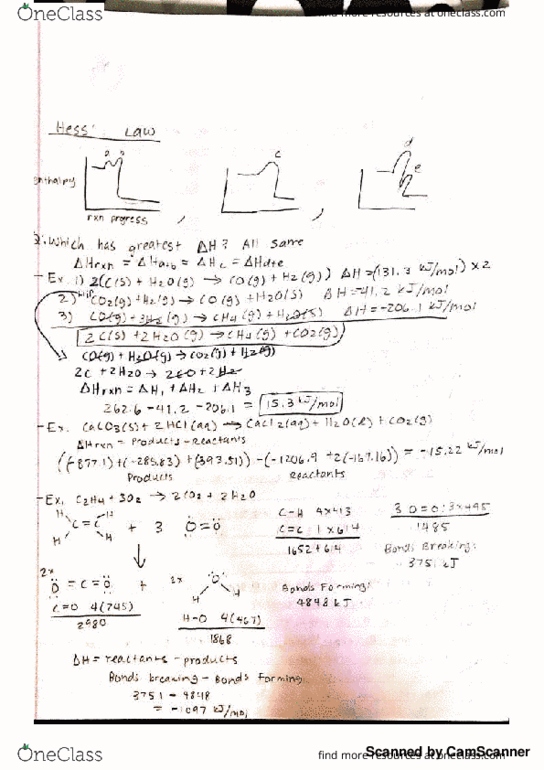 OneClass
find more resources at oneclass.com
Hess' Law
enthalpy
a b
c
d
e
rxn progress
Q: Which has greatest ΔH? All same
ΔHrxn = ΔHa+b = ΔHc = ΔHd+e
- Ex. 1) 2(C(s) + H2O(g) → CO(g) + H2(g)) ΔH = (131.3 kJ/mol) x 2
2) flip CO2(g) + H2(g) → CO(g) + H2O(g) ΔH = 41.2 kJ/mol
3) CO(g) + 3H2(g) → CH4(g) + H2O(g) ΔH = -206.1 kJ/mol
2C(s) + 2H2O(g) → CH4(g) + CO2(g)
CO(g) + H2O(g) → CO2(g) + H2(g)
2C + 2H2O → 2CO + 2H2
ΔHrxn = ΔH1 + ΔH2 + ΔH3
262.6 - 41.2 - 206.1 = 15.3 kJ/mol
- Ex. CaCO3(s) + 2HCl(aq) → CaCl2(aq) + H2O(l) + CO2(g)
ΔHrxn = Products - Reactants
((-877.1) + (-285.83) + (393.51)) - (-1206.9 + 2(-167.16)) = -15.22 kJ/mol
Products Reactants
- Ex. C2H4 + 3O2 → 2CO2 + 2H2O
H H
C = C
H H
+ 3 O=O
C-H 4x413
C=C 1x614
1652 + 614
3 O=O: 3x495
1485
Bonds Breaking:
3751 kJ
2x O = C = O + 2x O
H H
C=O 4(745)
2980
H-O 4(467)
1868
Bonds Forming:
4848 kJ
ΔH = reactants - products
Bonds breaking - Bonds forming
3751 - 4848
= -1097 kJ/mol
OneClass
find more resources at oneclass.com
Scanned by CamScanner